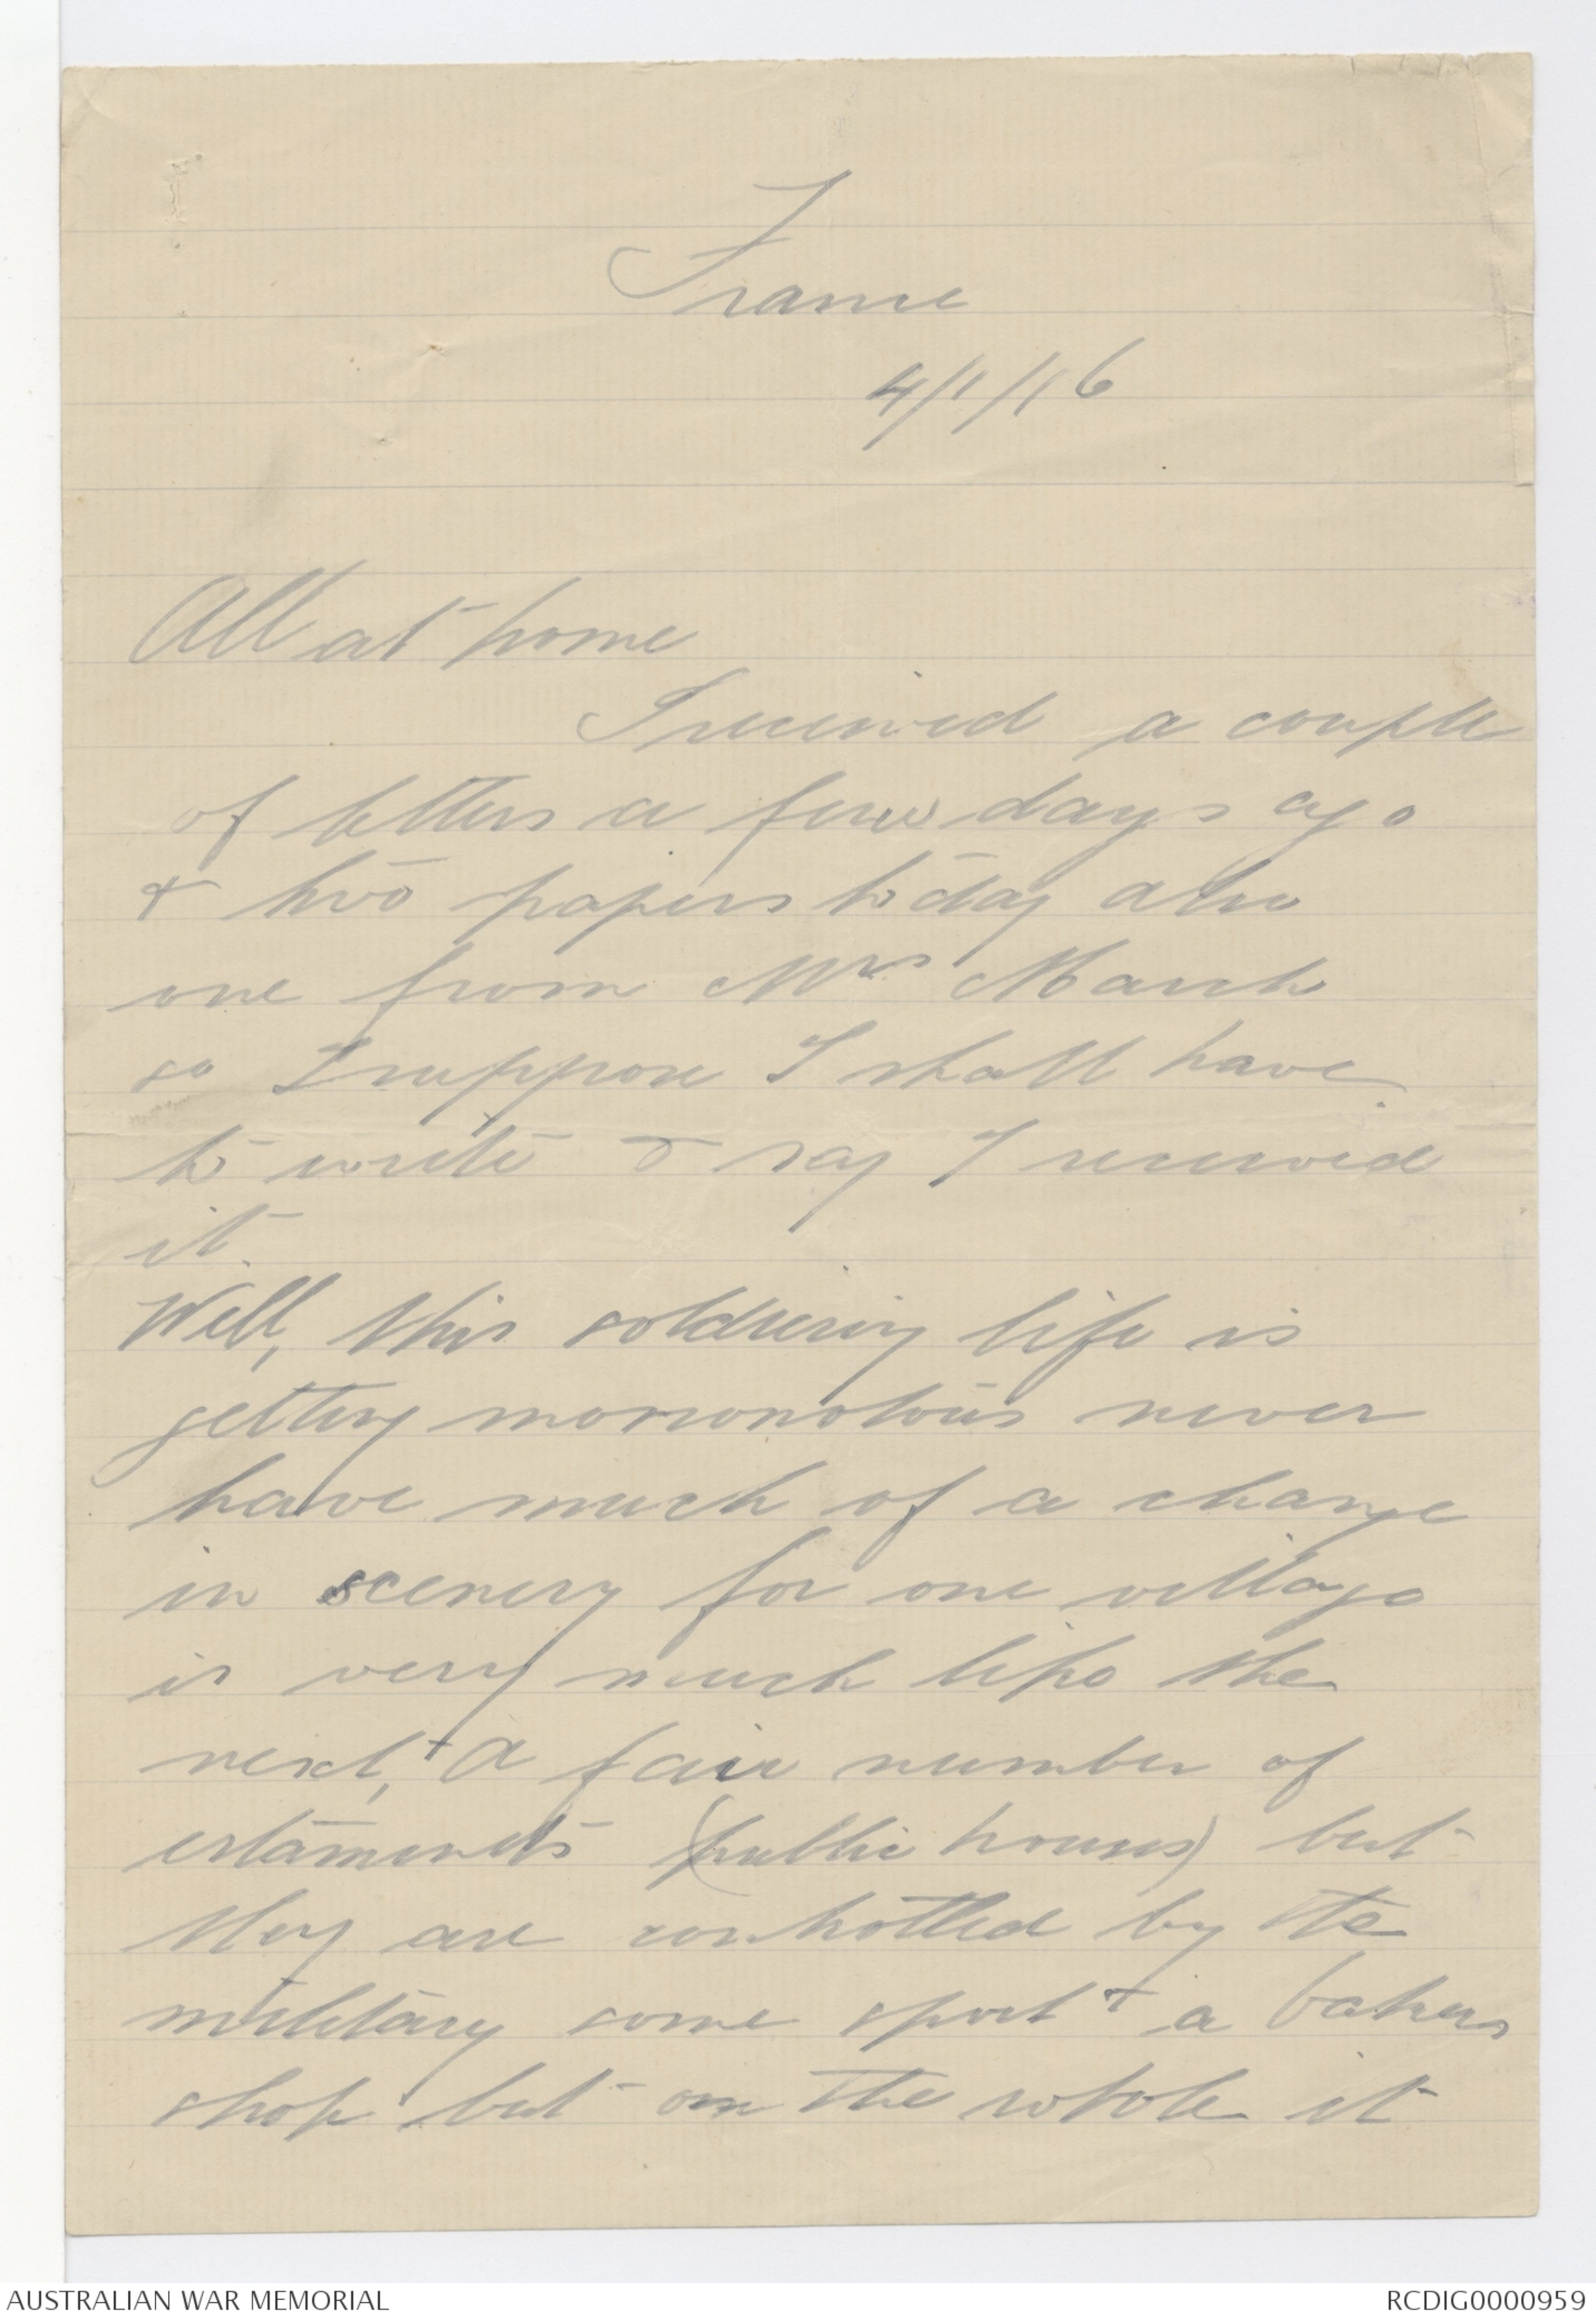 France
4/1/16
All at home
I received a couple
of letters a few days ago
& two papers to day also
one from Mrs March
so I suppose I shall have
to write & say I received
it.
Well, this soldiering life is
getting monoronotous never
have much of a change
in scenery for one village
is very much like the
next, & a fair number of
estaminets (public houses) but
they are controlled by the
military some sport & a bakers
shop but on the whole it
AUSTRALIAN WAR MEMORIAL
RCDIG0000959